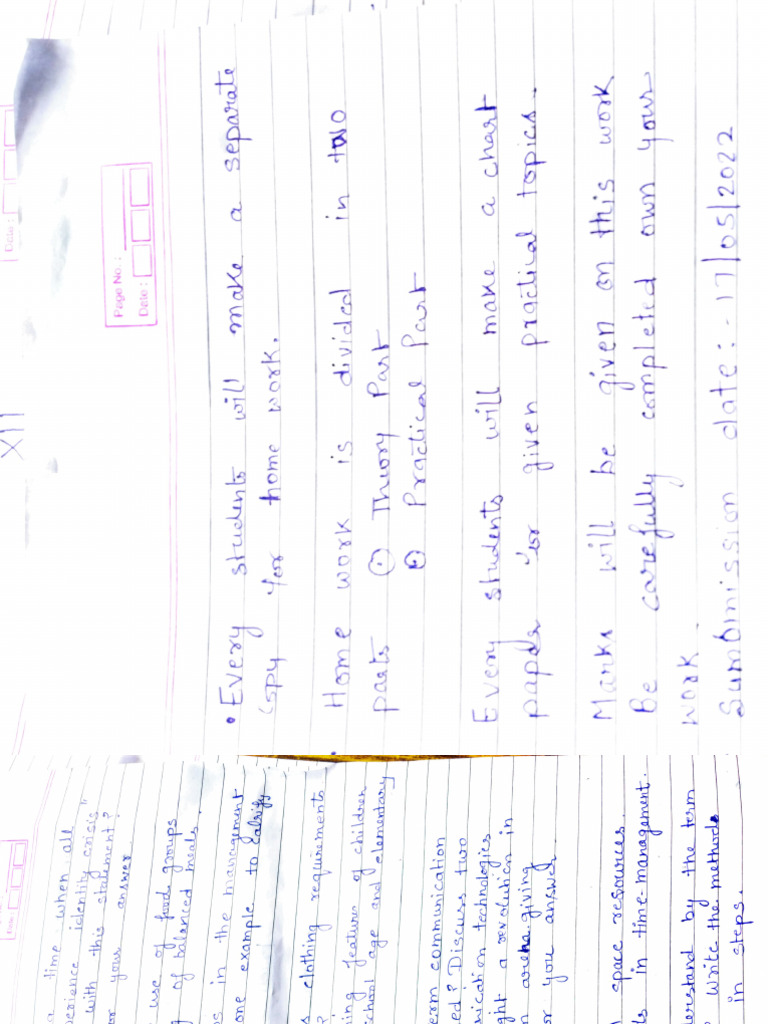 XII
Page No. :
Date :
• Every students will make a separate
copy for home work.
Home work is divided in two
parts ① Theory Part
② Practical Part
Every students will make a chart
paper for given practical topics.
Marks will be given on this work
Be carefully completed own your
work.
Sumbmission date:- 17/05/2022
Date :
a time when all
perience identity crisis"
with this statement?
or your answer
use of food groups
g of balanced meals.
s in the management
one example to calrify
s clothing requirements
?
ing features of children
chool age and elementary
erm communication
ed? Discuss two
nication technologies
ght a revolution in
n arena giving
or you answer
space resources.
ls in time management.
derstand by the term
? Write the methods
in steps.